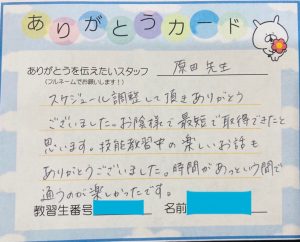 ありがとうカード
ありがとうを伝えたいスタッフ 原田先生
(フルネームでお願いします!)
スケジュール調整して頂きありがとう
ございました。お陰様で最短で取得できたと
思います。技能教習中の楽しいお話も
ありがとうございました。時間があっという間で
通うのが楽しかったです。
教習生番号 名前